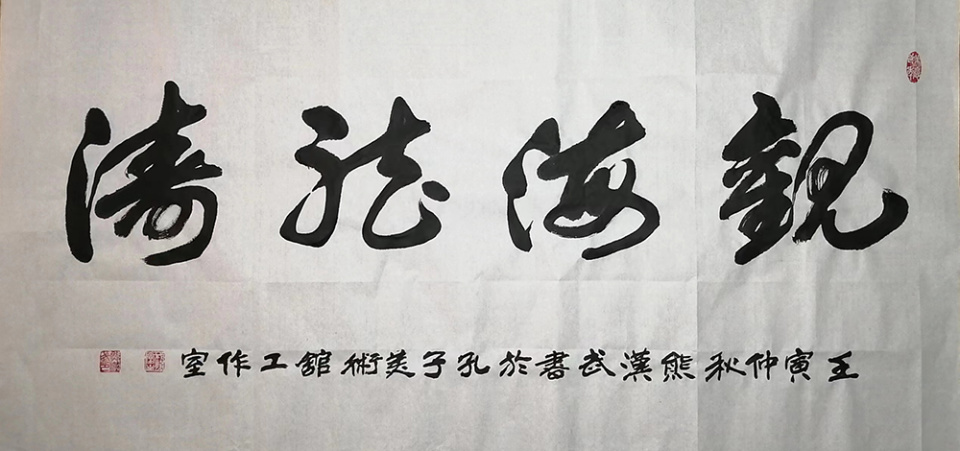 觀海聽濤
壬寅仲秋熊漢武書於孔子美術館工作室